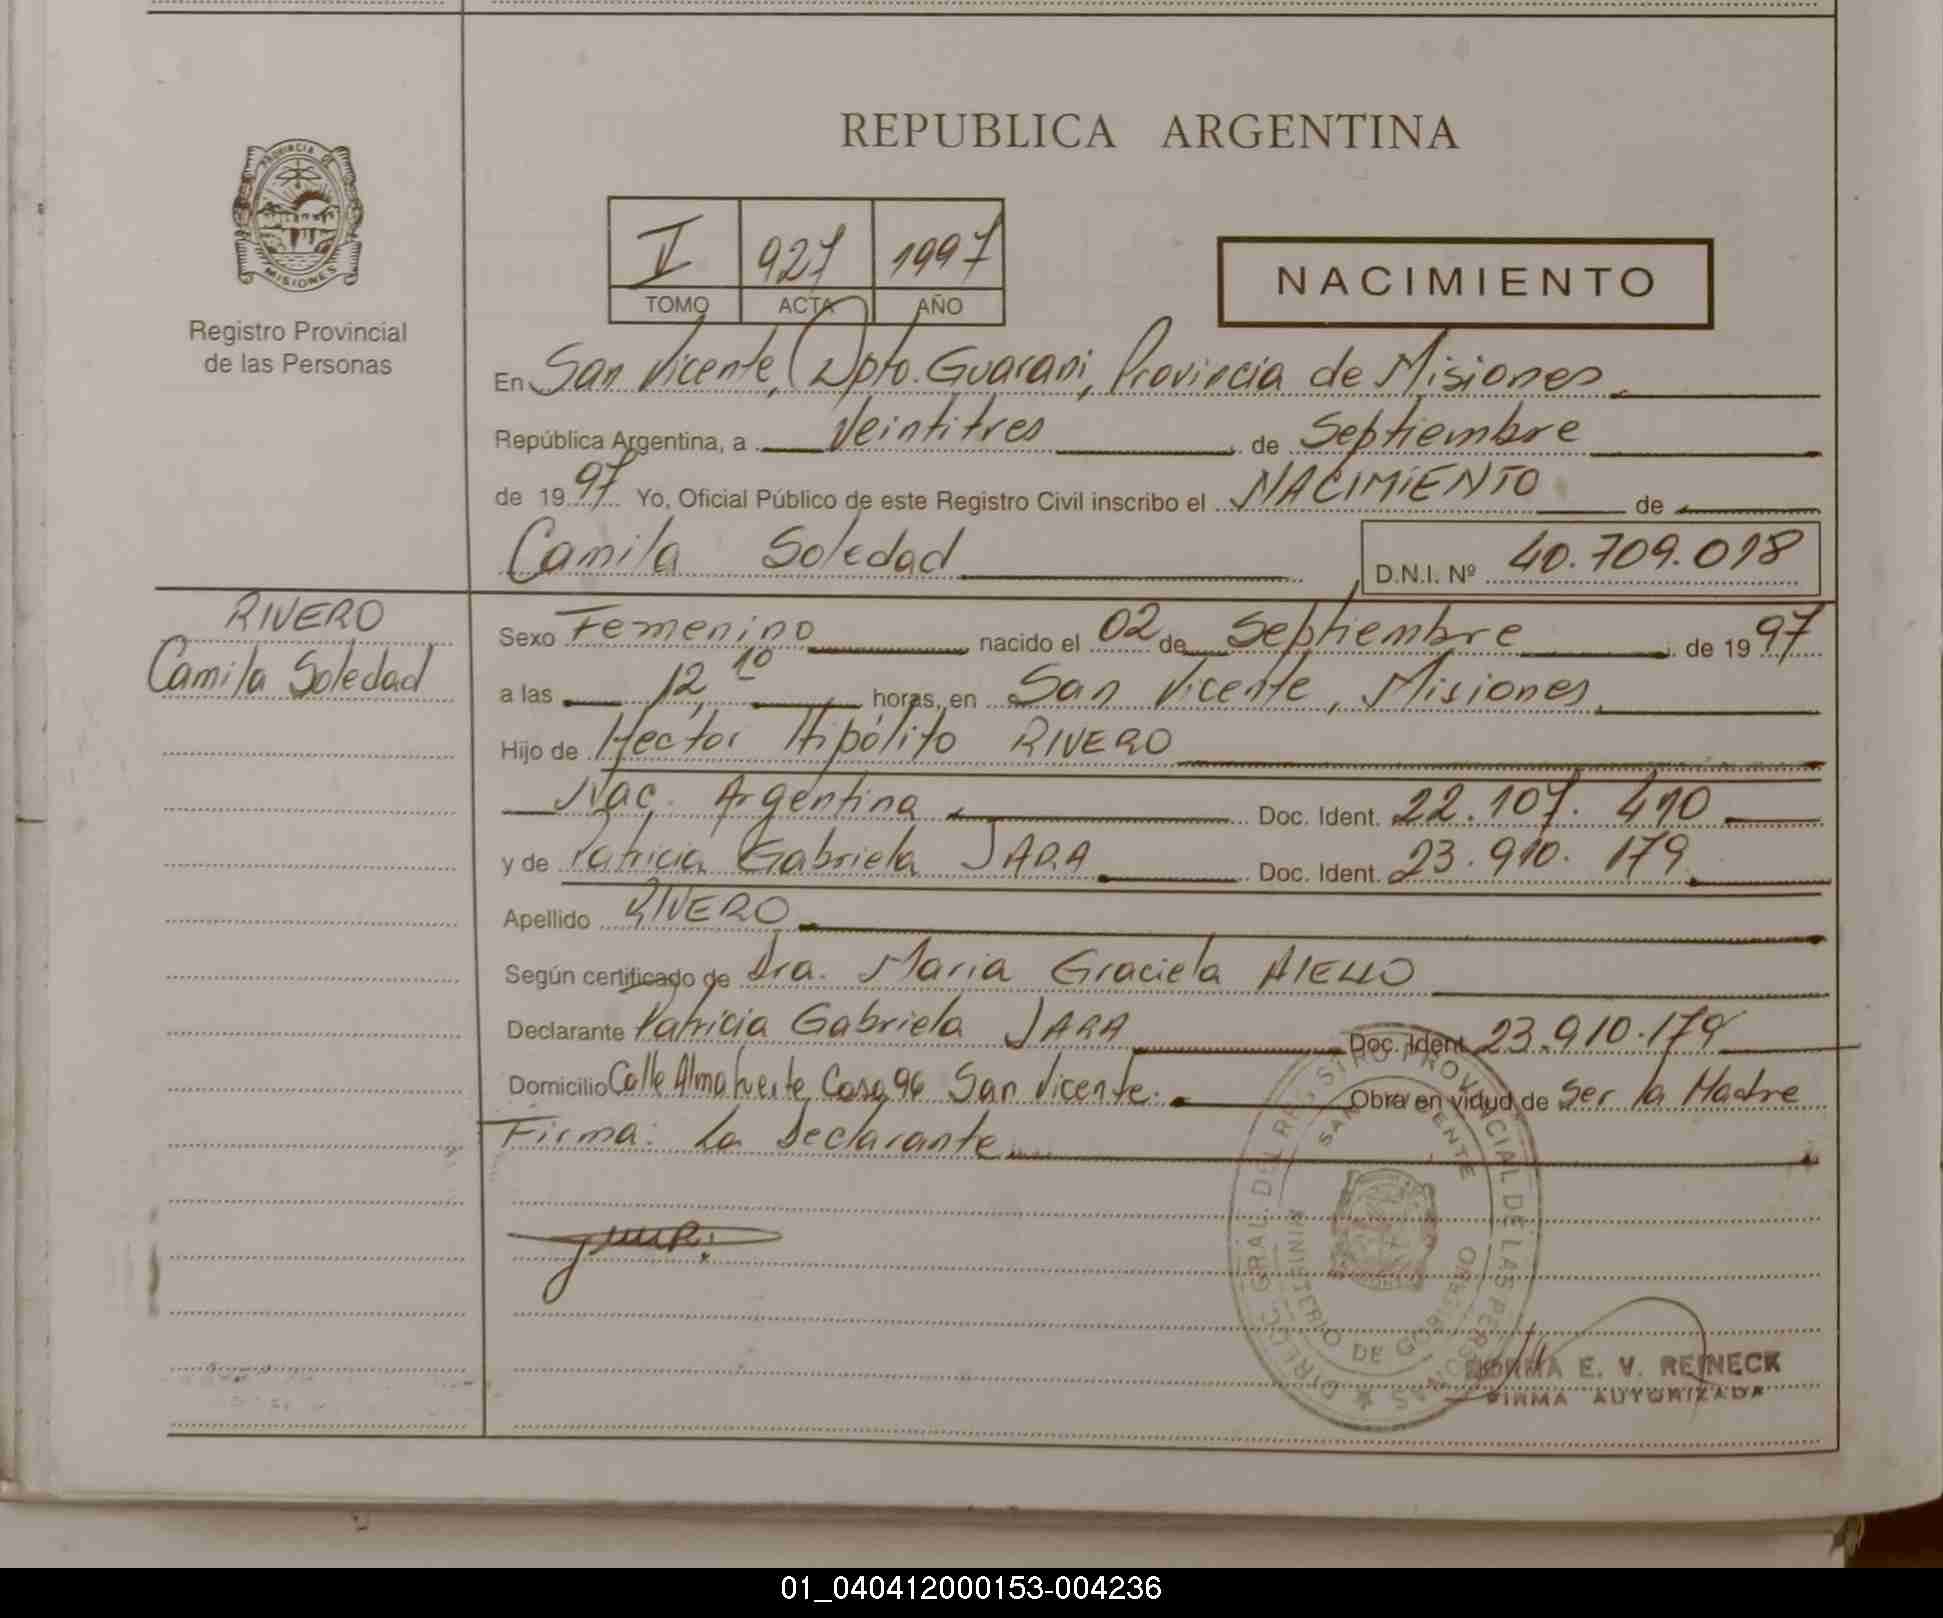 REPUBLICA ARGENTINA
PROVINCIA DE MISIONES
Registro Provincial
de las Personas
V 927 1997
TOMO ACTA AÑO
NACIMIENTO
En San Vicente, Dpto. Guarani, Provincia de Misiones
República Argentina, a Veintitres de Septiembre
de 1997 Yo, Oficial Público de este Registro Civil inscribo el NACIMIENTO de
Camila Soledad D.N.I. Nº 40.709.018
RIVERO
Camila Soledad
Sexo Femenino nacido el 02 de Septiembre de 1997
a las 12,10 horas, en San Vicente, Misiones
Hijo de Hector Hipólito RIVERO
Nac. Argentina Doc. Ident. 22.107.410
y de Patricia Gabriela JARA Doc. Ident. 23.910.179
Apellido RIVERO
Según certificado de Dra. Maria Graciela AIELLO
Declarante Patricia Gabriela JARA Doc. Ident. 23.910.179
Domicilio Calle Almafuerte Casa 96 San Vicente. Obra en vidud de Ser la Madre
Firma: La Declarante
DIREC. GRAL. DEL REGISTRO PROVINCIAL DE LAS PERSONAS
SAN VICENTE
MINISTERIO DE GOBIERNO
NORMA E. V. REINECK
FIRMA AUTORIZADA
01_040412000153-004236